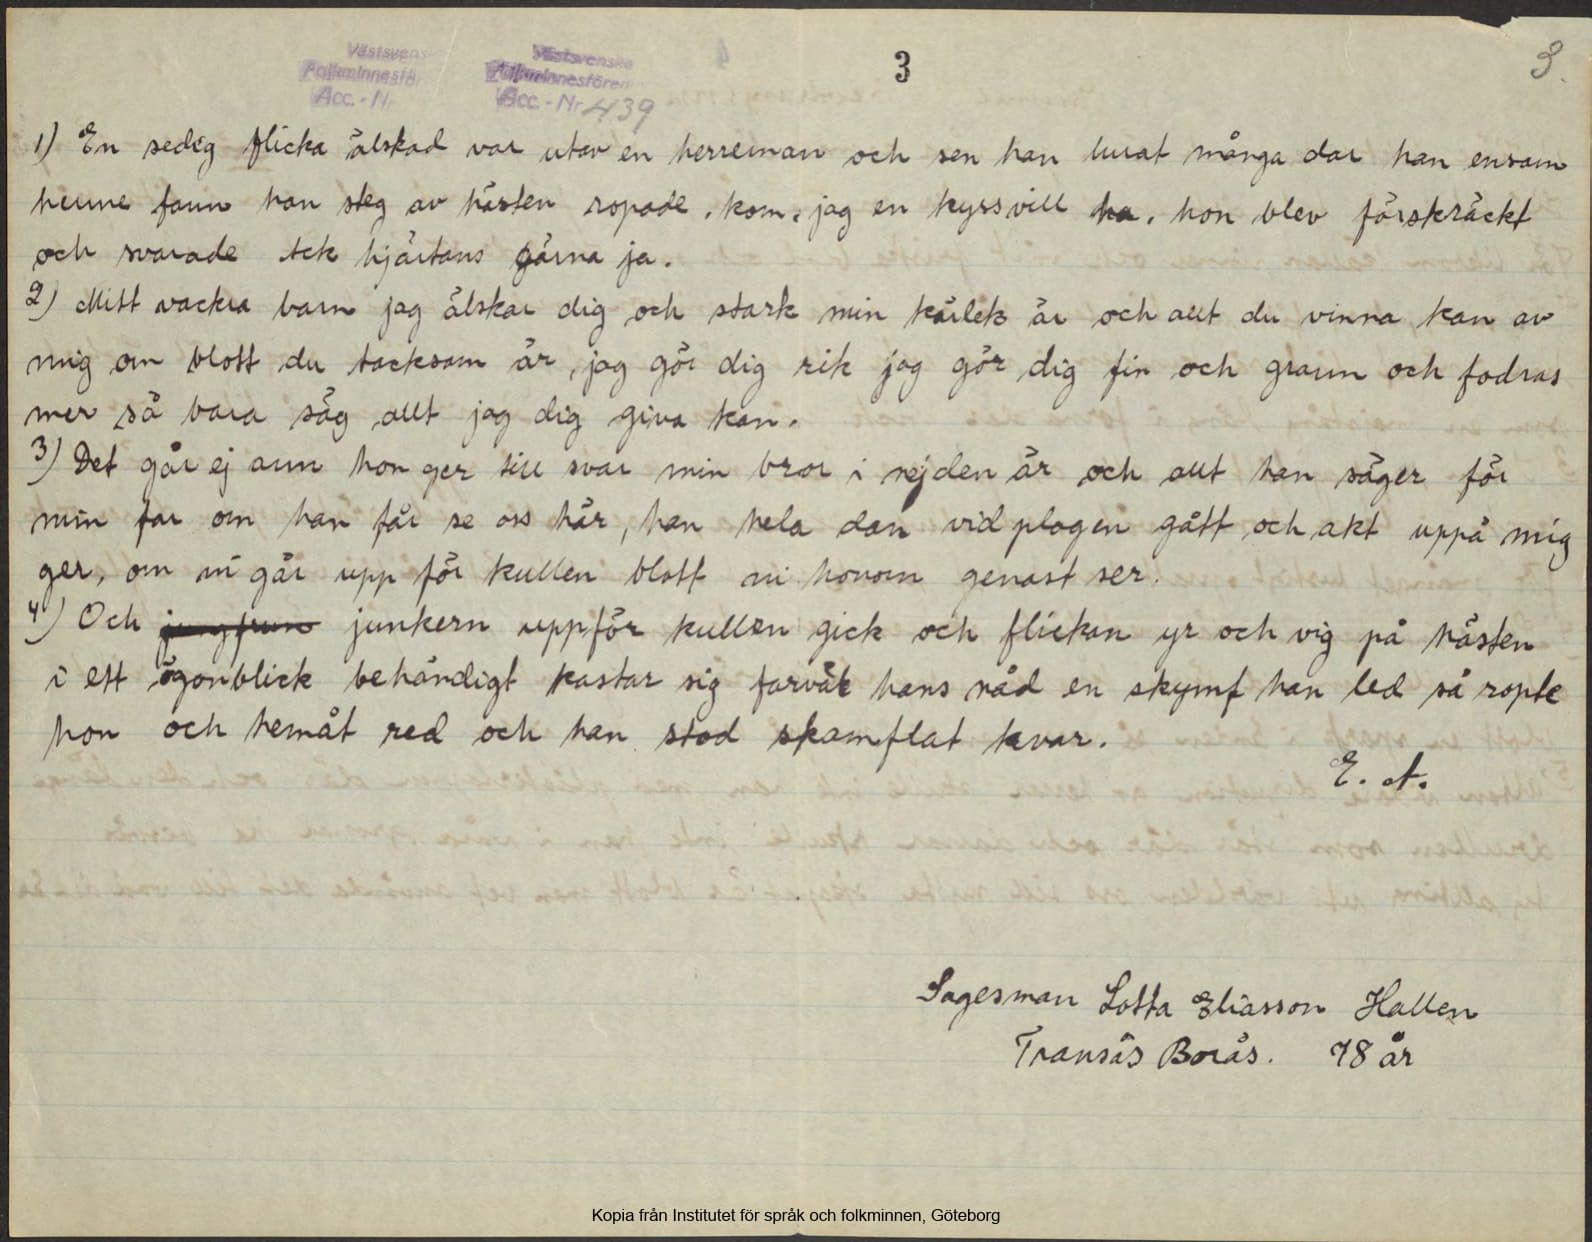 Västsvens
Folkminnesför
Acc. - Nr
Västsvenska
Folkminnesfören
Acc. - Nr 439
3
3.
1) En sedig flicka älskad var utav en herreman och sen han lurat många dar han ensam
henne fann han steg av hästen ropade, kom, jag en kyss vill ha, hon blev förskräckt
och svarade ack hjärtans gärna ja.
2) Mitt vackra barn jag älskar dig och stark min kärlek är och allt du vinna kan av
mig om blott du tacksam är, jag gör dig rik jag gör dig fin och grann och fodras
mer så bara säg allt jag dig giva kan.
3) Det går ej ann hon ger till svar min bror i nejden är och allt han säger för
min far om han får se oss här, han hela dan vid plogen gått och akt uppå mig
ger, om ni går upp för kullen blott ni honom genast ser.
4) Och jungfrun junkern uppför kullen gick och flickan yr och vig på hästen
i ett ögonblick behändigt kastar sig farväl hans nåd en skymf han led så ropte
hon och hemåt red och han stod skamflat kvar.
E. A.
Sagesman Lotta Eliasson Hallen
Tranäs Borås. 78 år
Kopia från Institutet för språk och folkminnen, Göteborg